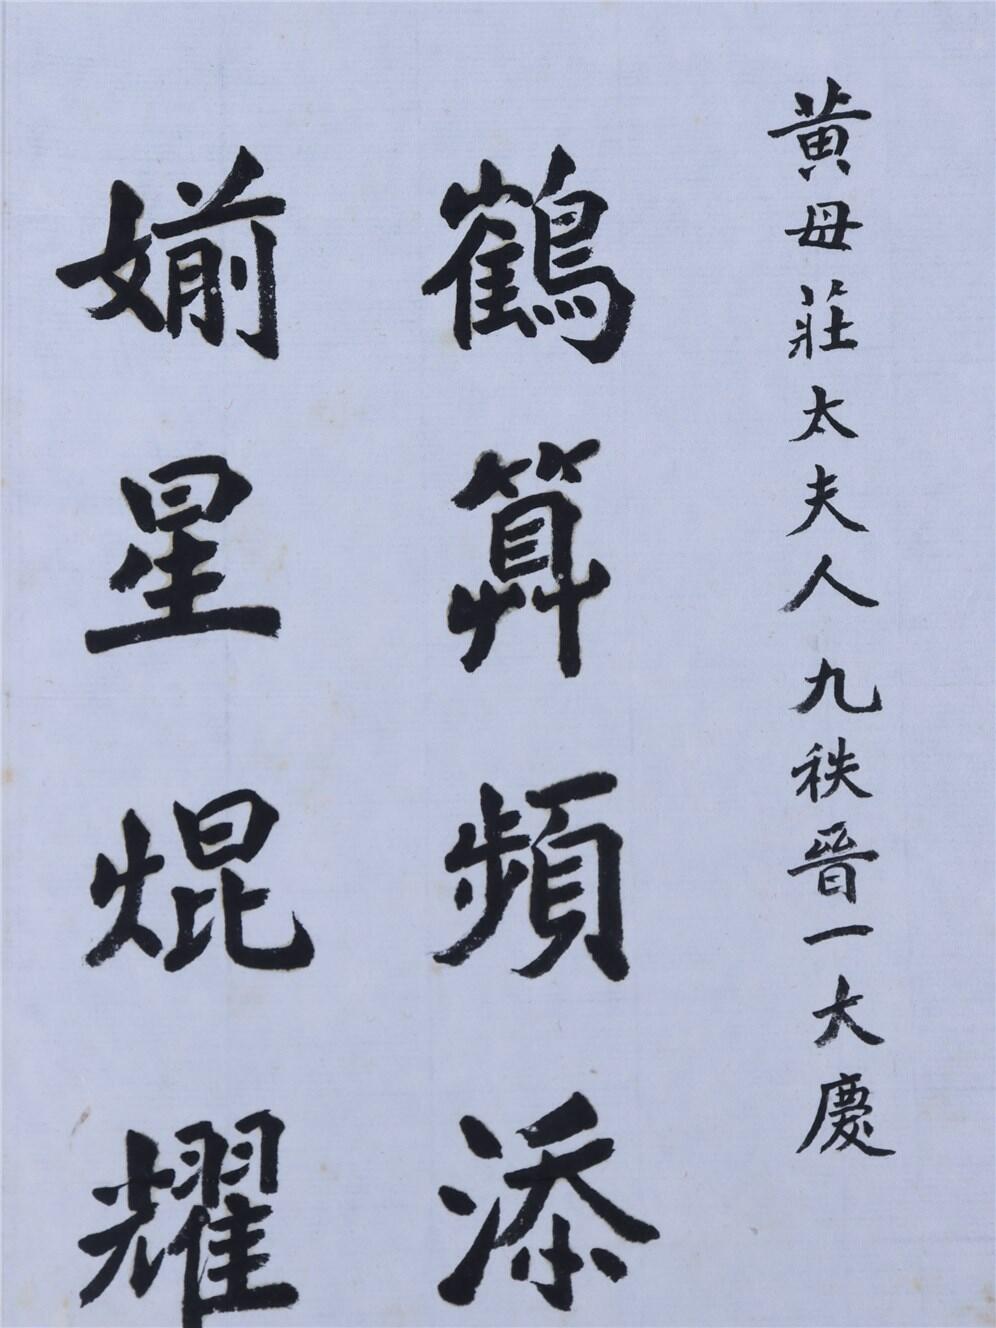 黃母莊太夫人九秩晉一大慶
鶴算頻添
婣星焜耀